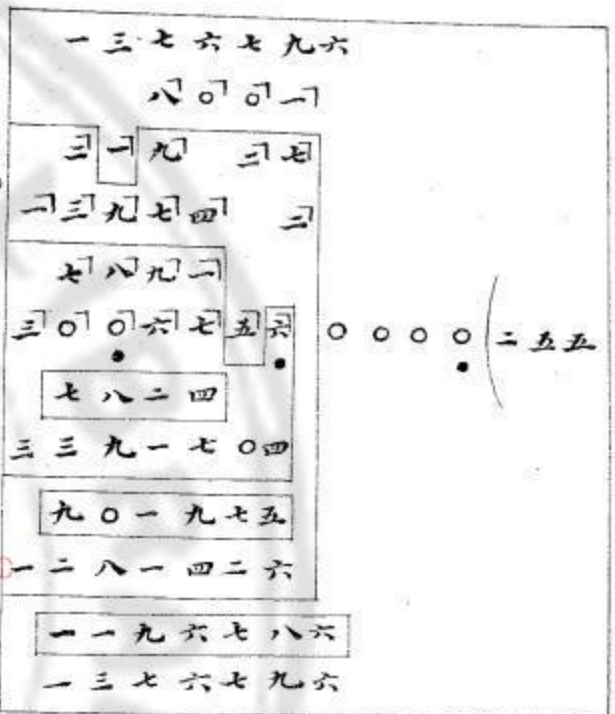 一三七六七九六
八〇〇一
三一九 三七
一三九七四 二
七八九一
三〇〇六七五六〇〇〇〇(二五五
七八二四
三三九一七〇四
九〇一九七五
一二八一四二六
一一九六七八六
一三七六七九六